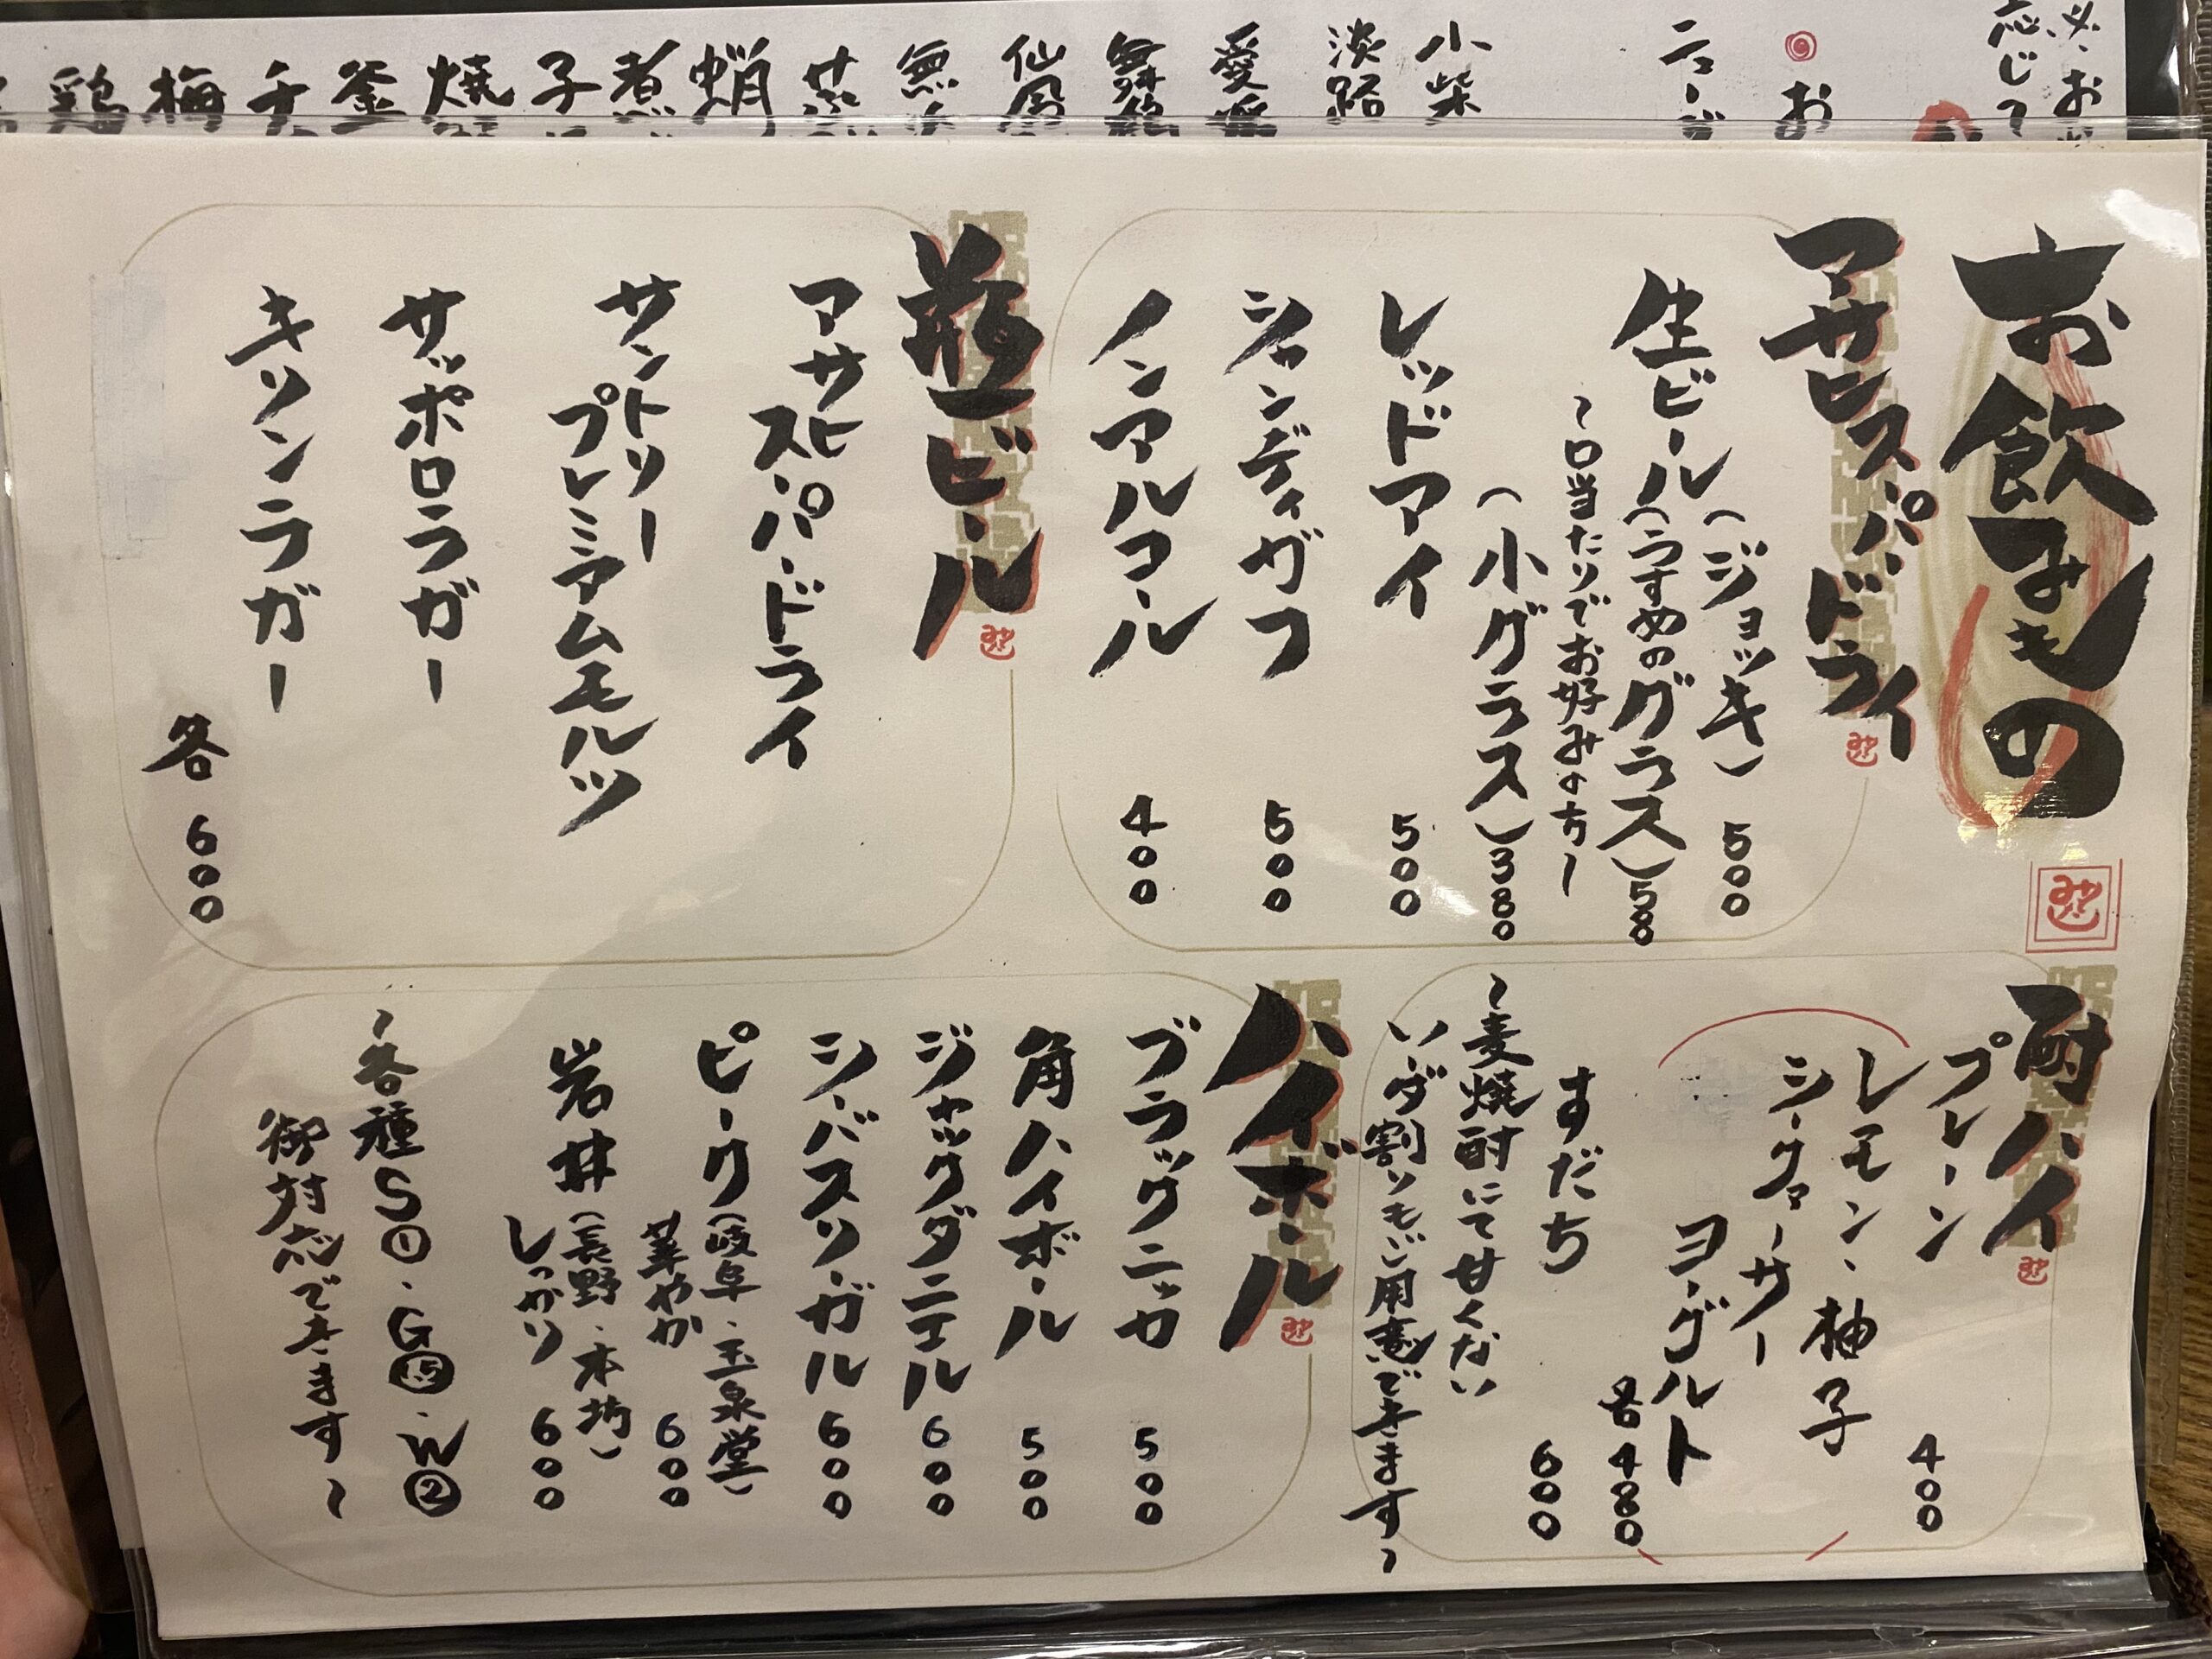 お飲みもの
アサヒスーパードライ
生ビール(ジョッキ) 500
(うすめのグラス) 580
~口当たりでお好みの方~
(小グラス) 380
レッドアイ 500
シャンディガフ 500
ノンアルコール 400
瓶ビール
アサヒスーパードライ
サントリー
プレミアムモルツ
サッポロラガー
キリンラガー
各600
酎ハイ
プレーン 400
レモン、柚子
シークァーサー
ヨーグルト
各480
すだち 600
~麦焼酎にて甘くない
ソーダ割りもご用意できます~
ハイボール
ブラックニッカ 500
角ハイボール 500
ジャックダニエル 600
シーバスリーガル 600
ピーク(岐阜・玉泉堂)
華やか 600
岩井(長野・本坊)
しっかり 600
~各種S①・G⑮・W②
御対応できます~
必、お
応じて
お
小柴
淡路
鶏
梅
釜
焼
子
煮
蛸
無
仙
愛